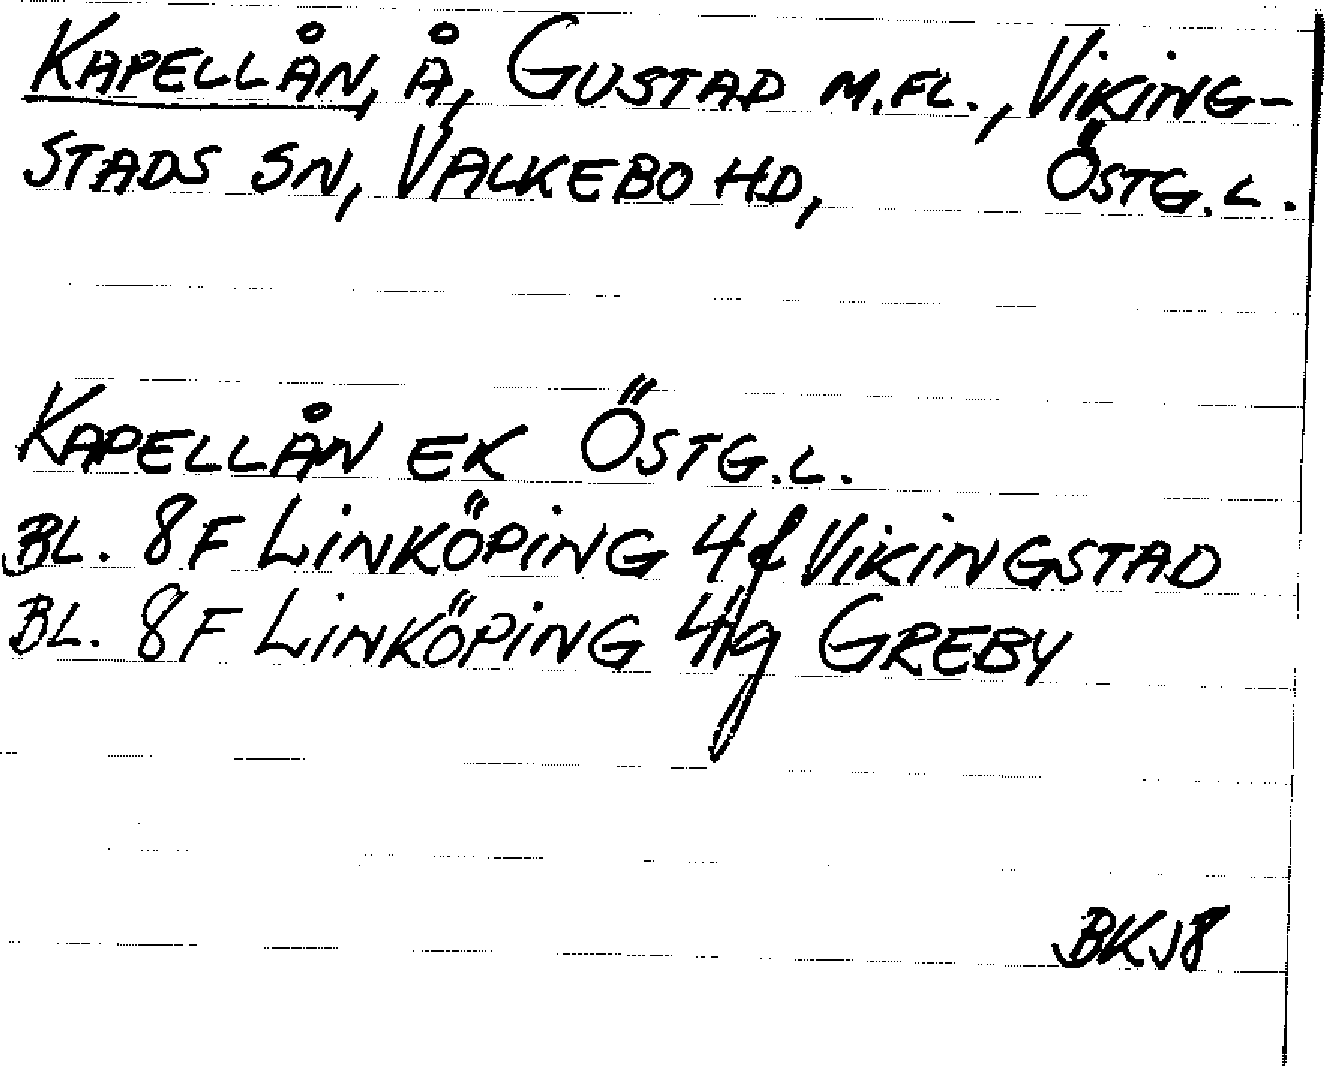 KAPELLÅN, Å, GUSTAD M.FL., VIKING-
STADS SN, VALKEBO HD, ÖSTG.L.
KAPELLÅN EK ÖSTG.L.
BL. 8F LINKÖPING 4f VIKINGSTAD
BL. 8F LINKÖPING 4g GREBY
BKJ8